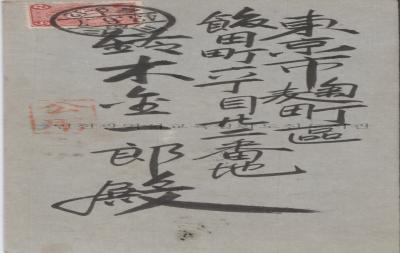 東京市麹町區
飯田町六丁目廿一番地
鈴木金一郎殿